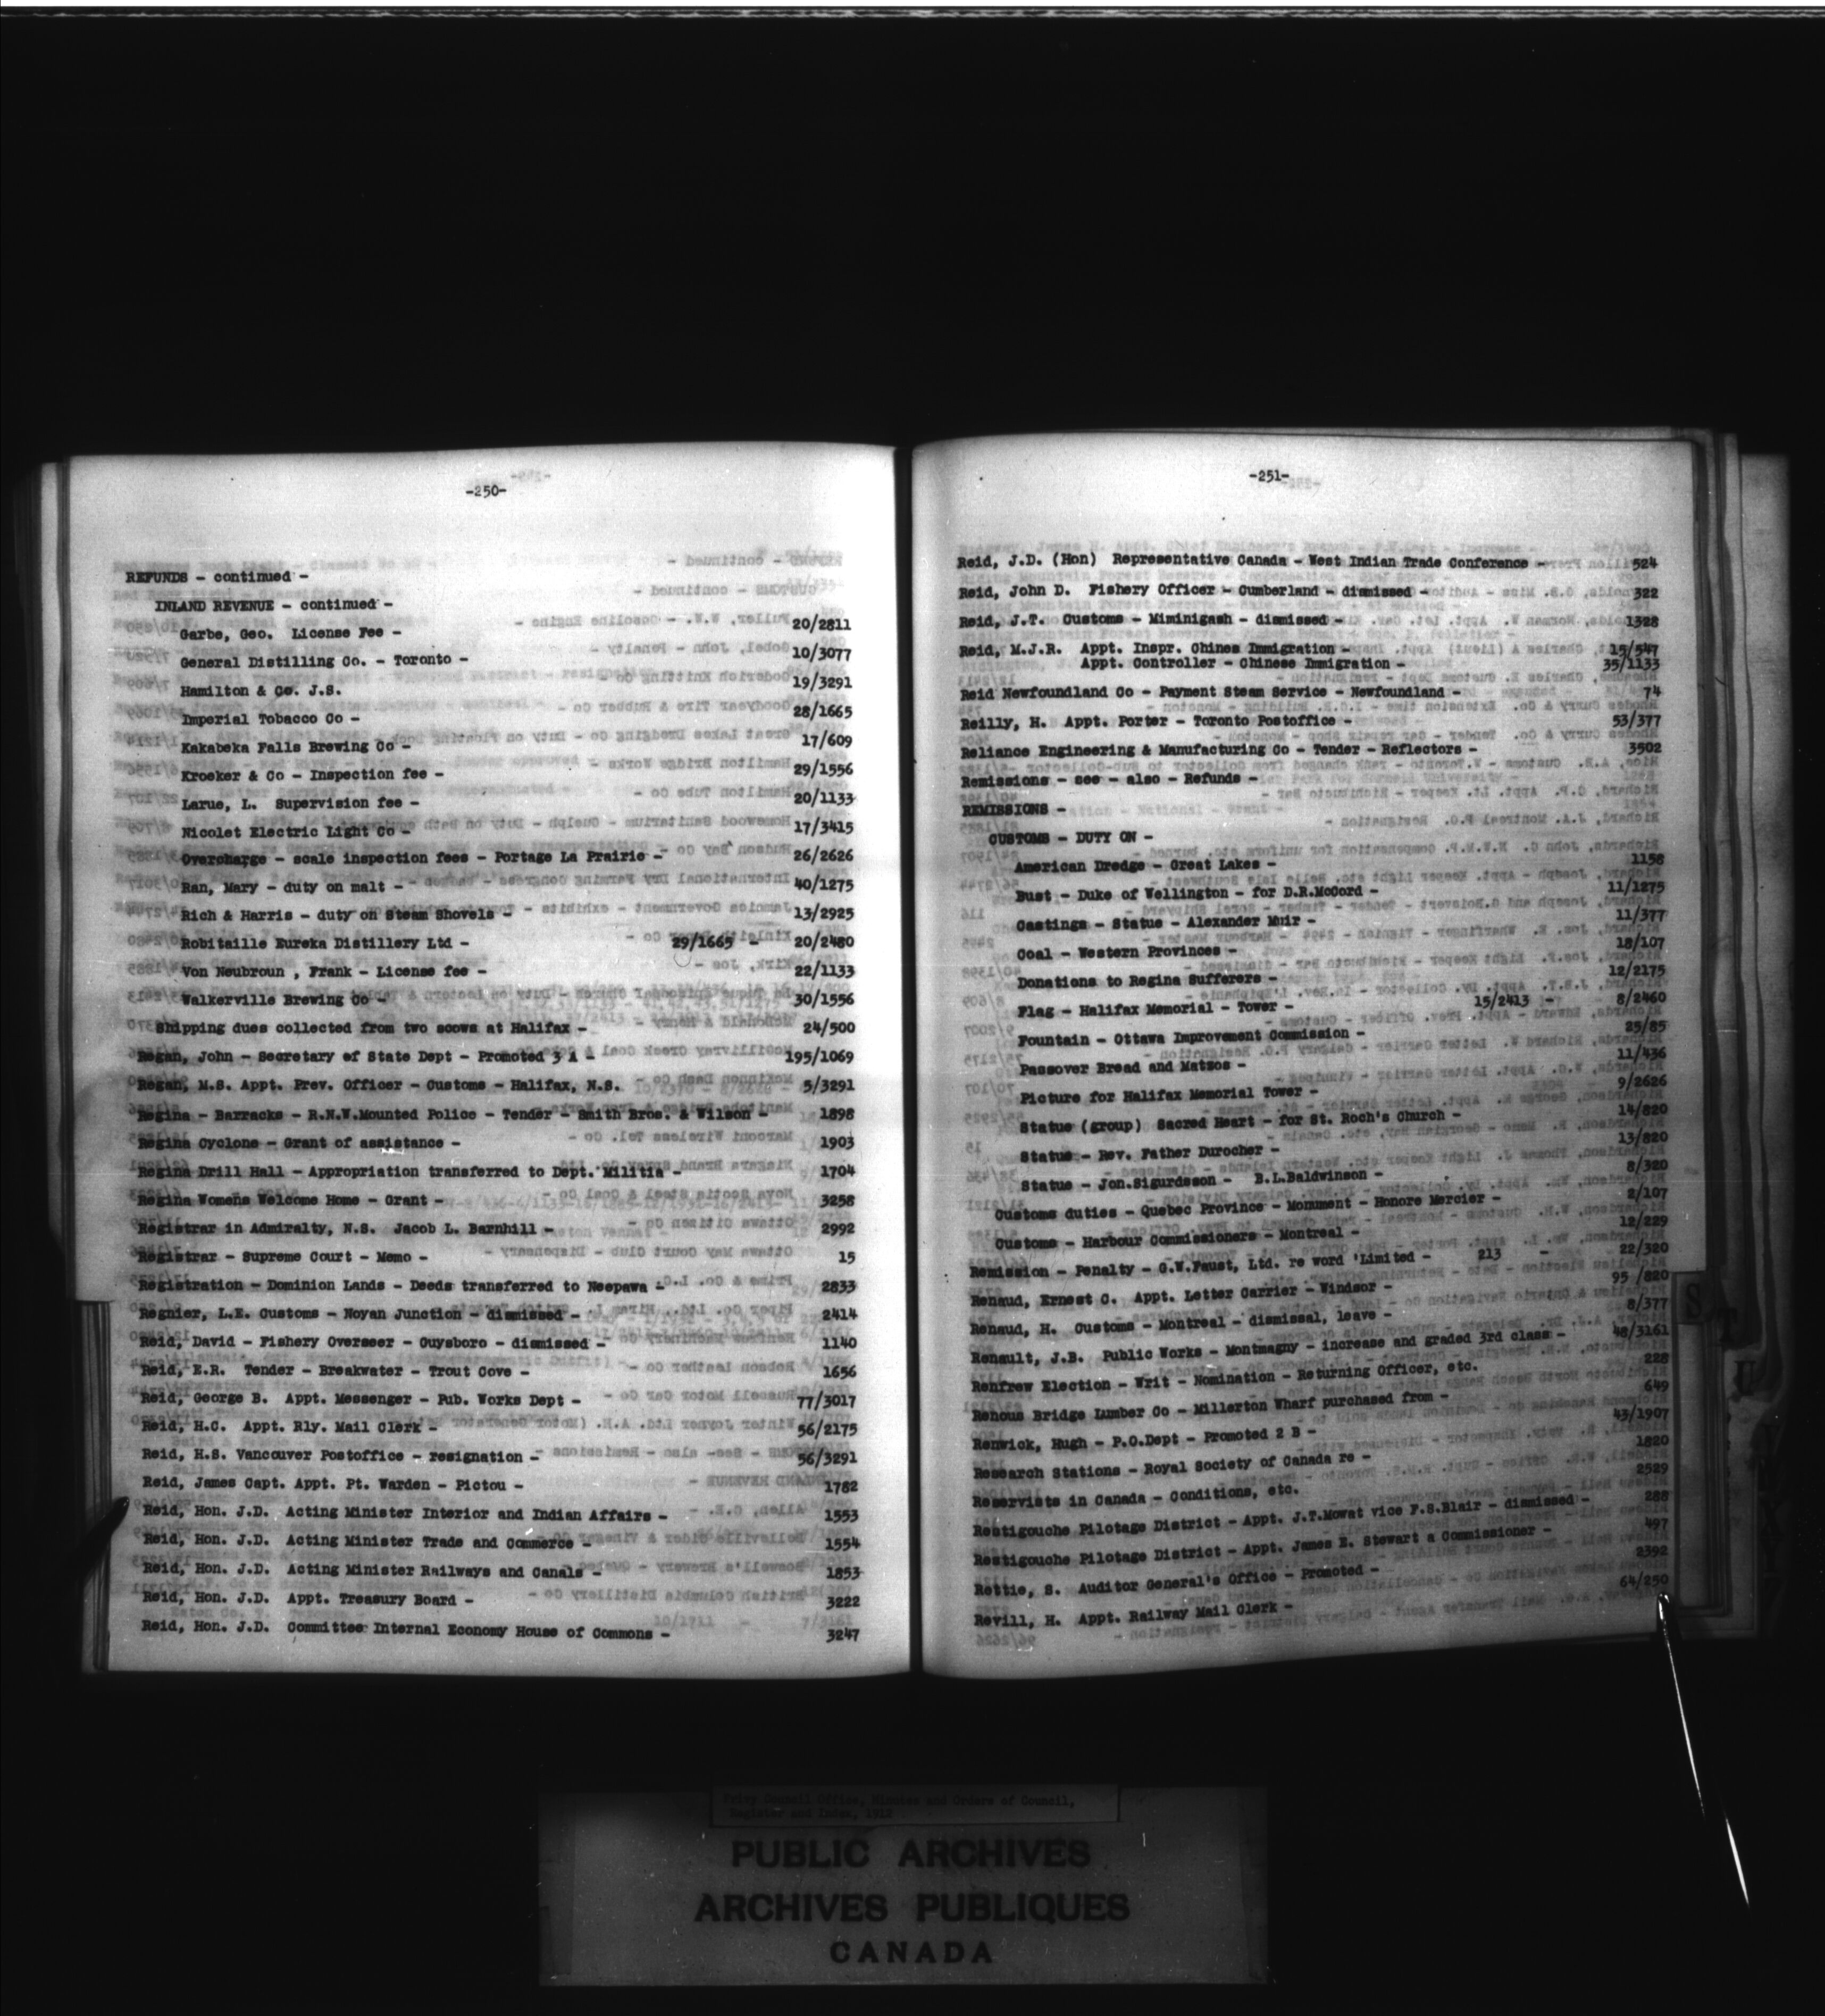 -250-
REFUNDS - continued -
INLAND REVENUE - continued -
Garbe, Geo. License Fee - 20/2811
General Distilling Co. - Toronto - 10/3077
Hamilton & Co. J.S. 19/3291
Imperial Tobacco Co - 28/1665
Kakabeka Falls Brewing Co - 17/609
Kroeker & Co - Inspection fee - 29/1556
Larue, L. Supervision fee - 20/1133
Nicolet Electric Light Co - 17/3415
Overcharge - scale inspection fees - Portage La Prairie - 26/2626
Ran, Mary - duty on malt - 40/1275
Rich & Harris - duty on Steam Shovels - 13/2925
Robitaille Eureka Distillery Ltd - 29/1665 - 20/2480
Von Neubroun , Frank - License fee - 22/1133
Walkerville Brewing Co - 30/1556
Shipping dues collected from two scows at Halifax - 24/500
Regan, John - Secretary of State Dept - Promoted 3 A - 195/1069
Regan, M.S. Appt. Prev. Officer - Customs - Halifax, N.S. 5/3291
Regina - Barracks - R.N.W.Mounted Police - Tender - Smith Bros. & Wilson - 1898
Regina Cyclone - Grant of assistance - 1903
Regina Drill Hall - Appropriation transferred to Dept. Militia - 1704
Regina Womens Welcome Home - Grant - 3258
Registrar in Admiralty, N.S. Jacob L. Barnhill - 2992
Registrar - Supreme Court - Memo - 15
Registration - Dominion Lands - Deeds transferred to Neepawa - 2833
Regnier, L.E. Customs - Noyan Junction - dismissed - 2414
Reid, David - Fishery Overseer - Guysboro - dismissed - 1140
Reid, E.R. Tender - Breakwater - Trout Cove - 1656
Reid, George B. Appt. Messenger - Pub. Works Dept - 77/3017
Reid, H.C. Appt. Rly. Mail Clerk - 56/2175
Reid, H.S. Vancouver Postoffice - resignation - 56/3291
Reid, James Capt. Appt. Pt. Warden - Pictou - 1782
Reid, Hon. J.D. Acting Minister Interior and Indian Affairs - 1553
Reid, Hon. J.D. Acting Minister Trade and Commerce - 1554
Reid, Hon. J.D. Acting Minister Railways and Canals - 1853
Reid, Hon. J.D. Appt. Treasury Board - 3222
Reid, Hon. J.D. Committee Internal Economy House of Commons - 3247
-251-
Reid, J.D. (Hon) Representative Canada - West Indian Trade Conference - 524
Reid, John D. Fishery Officer - Cumberland - dismissed - 322
Reid, J.T. Customs - Miminigash - dismissed - 1328
Reid, M.J.R. Appt. Inspr. Chines Immigration - 15/547
Appt. Controller - Chinese Immigration - 35/1133
Reid Newfoundland Co - Payment Steam Service - Newfoundland - 74
Reilly, H. Appt. Porter - Toronto Postoffice - 53/377
Reliance Engineering & Manufacturing Co - Tender - Reflectors - 3502
Remissions - see - also - Refunds -
REMISSIONS -
CUSTOMS - DUTY ON -
American Dredge - Great Lakes - 1158
Bust - Duke of Wellington - for D.R.McCord - 11/1275
Castings - Statue - Alexander Muir - 11/377
Coal - Western Provinces - 18/107
Donations to Regina Sufferers - 12/2175
Flag - Halifax Memorial - Tower - 15/2413 - 8/2460
Fountain - Ottawa Improvement Commission - 25/85
Passover Bread and Matzos - 11/436
Picture for Halifax Memorial Tower - 9/2626
Statue (group) Sacred Heart - for St. Roch's Church - 14/820
Statue - Rev. Father Durocher - 13/820
Statue - Jon.Sigurdsson - B.L.Baldwinson - 8/320
Customs duties - Quebec Province - Monument - Honore Mercier - 2/107
Customs - Harbour Commissioners - Montreal - 12/229
Remission - Penalty - G.W.Faust, Ltd. re word 'Limited - 213 - 22/320
Renaud, Ernest C. Appt. Letter Carrier - Windsor - 95 /820
Renaud, H. Customs - Montreal - dismissal, leave - 8/377
Renault, J.B. Public Works - Montmagny - increase and graded 3rd class - 48/3161
Renfrew Election - Writ - Nomination - Returning Officer, etc. 228
Renous Bridge Lumber Co - Millerton Wharf purchased from - 649
Renwick, Hugh - P.O.Dept - Promoted 2 B - 43/1907
Research Stations - Royal Society of Canada re - 1820
Reservists in Canada - Conditions, etc. 2529
Restigouche Pilotage District - Appt. J.T.Mowat vice F.S.Blair - dismissed - 288
Restigouche Pilotage District - Appt. James E. Stewart a Commissioner - 497
Rettie, S. Auditor General's Office - Promoted - 2392
Revill, H. Appt. Railway Mail Clerk - 64/250
Privy Council Office, Minutes and Orders of Council,
Register and Index, 1912
PUBLIC ARCHIVES
ARCHIVES PUBLIQUES
CANADA